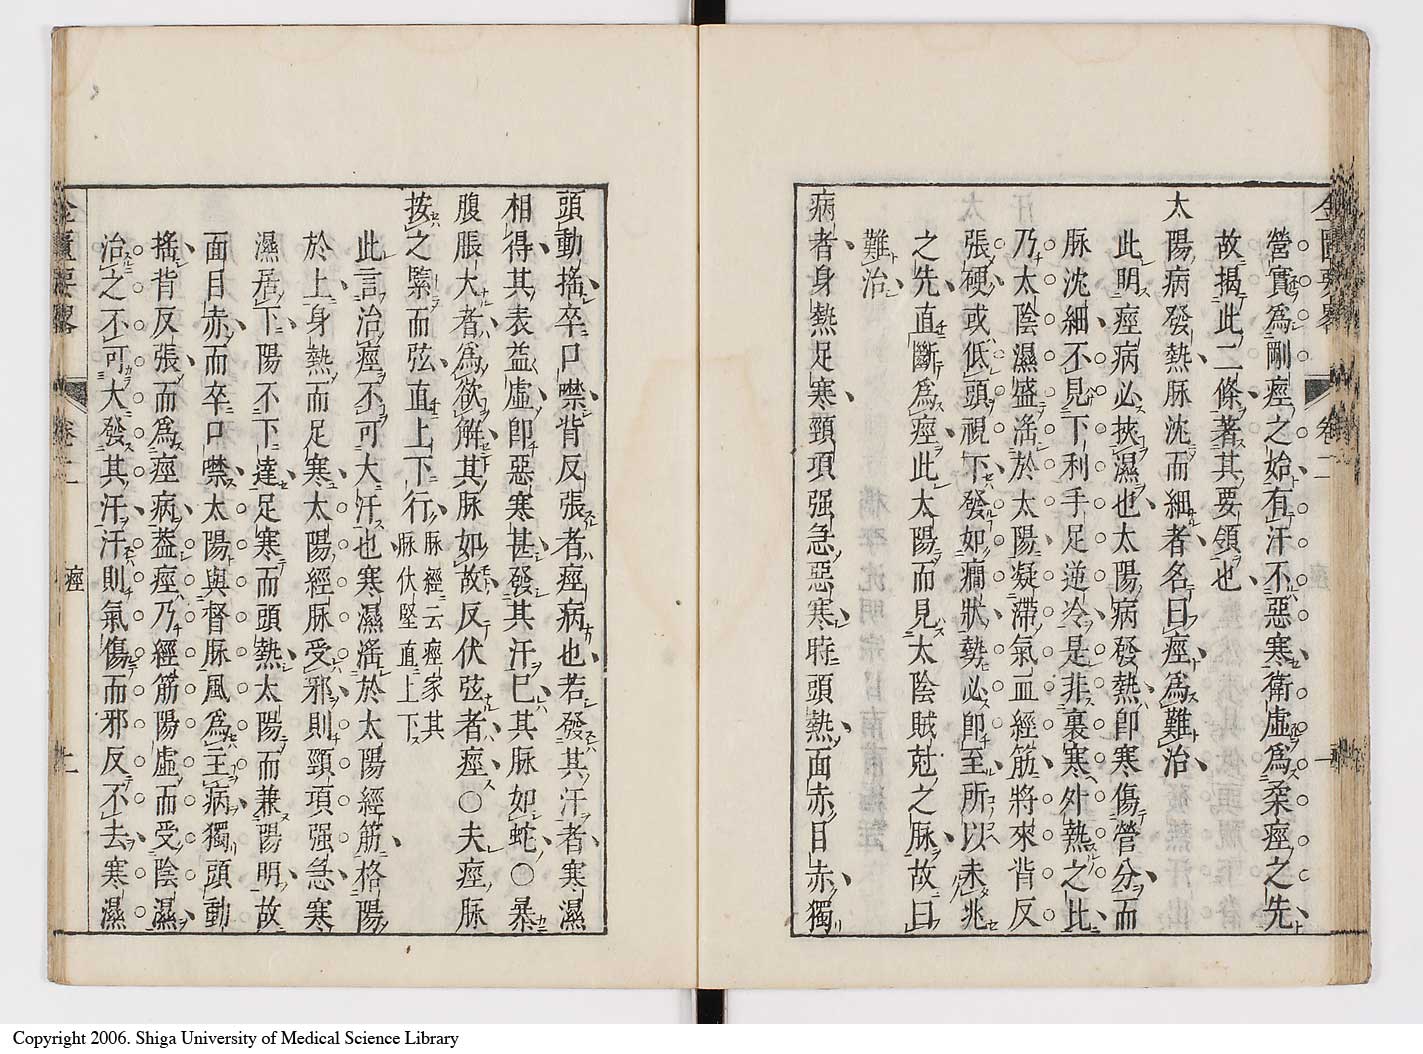 金匱要略 卷二 痙 一
營實為剛痙之始有汗不惡寒衛虛為柔痙之先
故揭此二條著其要領也
太陽病發熱脉沈而細者名曰痙為難治
此明痙病必挾濕也太陽病發熱卽寒傷營分而
脉沈細不見下利手足逆冷是非裏寒外熱之比
乃太陰濕盛淫於太陽凝滯氣血經筋將來背反
張硬或低頭視下發如癎狀勢必卽至所以未兆
之先直斷為痙此太陽而見太陰賊尅之脉故曰
難治
病者身熱足寒頸項强急惡寒時頭熱面赤目赤獨
頭動搖卒口噤背反張者痙病也若發其汗者寒濕
相得其表益虛卽惡寒甚發其汗已其脉如蛇○暴
腹脹大者為欲解其脉如故反伏弦者痙○夫痙脉
按之緊而弦直上下行
脉經云痙家其
脉伏堅直上下
此言治痙不可大汗也寒濕淫於太陽經筋格陽
於上身熱而足寒太陽經脉受邪則頸項强急寒
濕居下陽不下達足寒而頭熱太陽而兼陽明故
面目赤而卒口噤太陽與督脉風為主病獨頭動
搖背反張而為痙病葢痙乃經筋陽虛而受陰濕
治之不可大發其汗汗則氣傷而邪反不去寒濕
金匱要略 卷二 痙 二
Copyright 2006. Shiga University of Medical Science Library